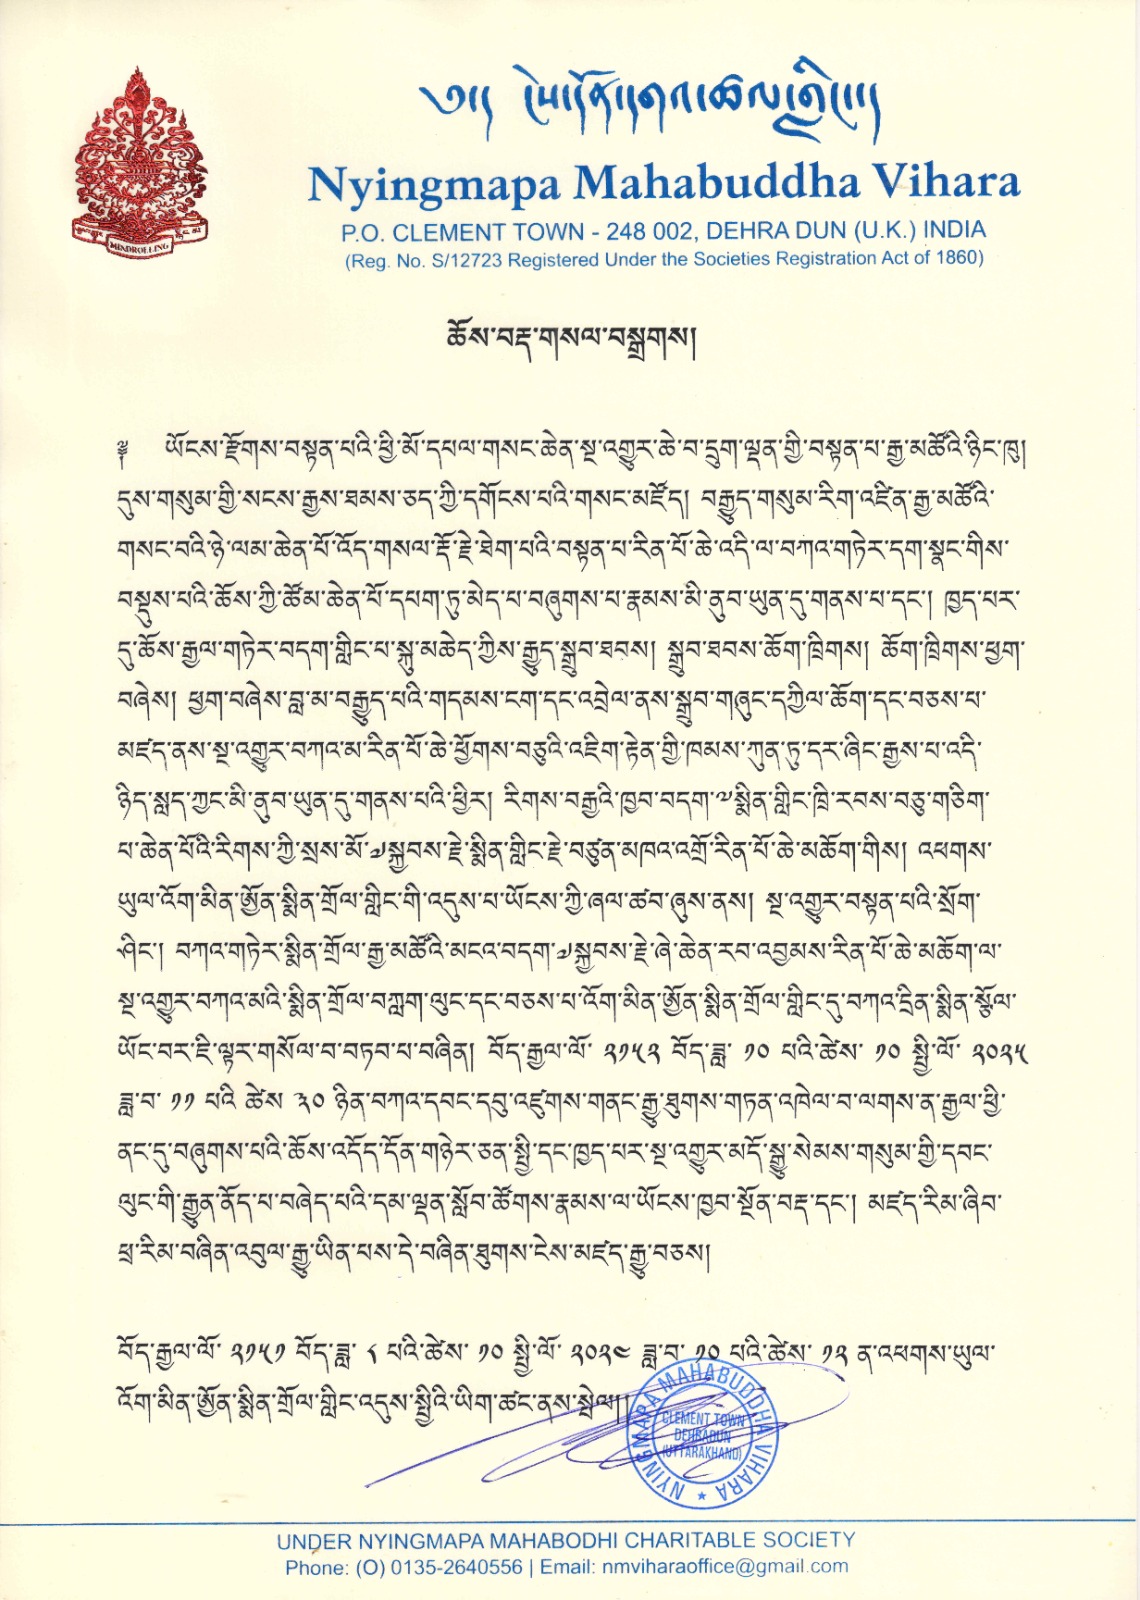 MINDROLLING
Nyingmapa Mahabuddha Vihara
P.O. CLEMENT TOWN - 248 002, DEHRA DUN (U.K.) INDIA
(Reg. No. S/12723 Registered Under the Societies Registration Act of 1860)
ཆོས་བརྡ་གསལ་བསྒྲགས།
༈ ཡོངས་རྫོགས་བསྟན་པའི་ཕྱི་མོ་དཔལ་གསང་ཆེན་སྔ་འགྱུར་ཆེ་བ་དྲུག་ལྡན་གྱི་བསྟན་པ་རྒྱ་མཚོའི་ཉིང་ཁུ།
དུས་གསུམ་གྱི་སངས་རྒྱས་ཐམས་ཅད་ཀྱི་དགོངས་པའི་གསང་མཛོད། བརྒྱུད་གསུམ་རིག་འཛིན་རྒྱ་མཚོའི་
གསང་བའི་ཉེ་ལམ་ཆེན་པོ་འོད་གསལ་རྡོ་རྗེ་ཐེག་པའི་བསྟན་པ་རིན་པོ་ཆེ་འདི་ལ་བཀའ་གཏེར་དག་སྣང་གིས་
བསྡུས་པའི་ཆོས་ཀྱི་ཚོམ་ཆེན་པོ་དཔག་ཏུ་མེད་པ་བཞུགས་པ་རྣམས་མི་ནུབ་ཡུན་དུ་གནས་པ་དང་། ཁྱད་པར་
དུ་ཆོས་རྒྱལ་གཏེར་བདག་གླིང་པ་སྐུ་མཆེད་ཀྱིས་རྒྱུད་སྒྲུབ་ཐབས། སྒྲུབ་ཐབས་ཆོག་ཁྲིགས། ཆོག་ཁྲིགས་ཕྱག་
བཞེས། ཕྱག་བཞེས་བླ་མ་བརྒྱུད་པའི་གདམས་ངག་དང་འབྲེལ་ནས་སྒྲུབ་གཞུང་དཀྱིལ་ཆོག་དང་བཅས་པ་
མཛད་ནས་སྔ་འགྱུར་བཀའ་མ་རིན་པོ་ཆེ་ཕྱོགས་བཅུའི་འཇིག་རྟེན་གྱི་ཁམས་ཀུན་ཏུ་དར་ཞིང་རྒྱས་པ་འདི་
ཉིད་སླད་ཀྱང་མི་ནུབ་ཡུན་དུ་གནས་པའི་ཕྱིར། རིགས་བརྒྱའི་ཁྱབ་བདག་༧སྨིན་གླིང་ཁྲི་རབས་བཅུ་གཅིག་
པ་ཆེན་པོའི་རིགས་ཀྱི་སྲས་མོ་༧སྐྱབས་རྗེ་སྨིན་གླིང་རྗེ་བཙུན་མཁའ་འགྲོ་རིན་པོ་ཆེ་མཆོག་གིས། འཕགས་
ཡུལ་འོག་མིན་ཨྱོན་སྨིན་གྲོལ་གླིང་གི་འདུས་པ་ཡོངས་ཀྱི་ཞལ་ཚབ་ཞུས་ནས། སྔ་འགྱུར་བསྟན་པའི་སྲོག་
ཤིང་། བཀའ་གཏེར་སྨིན་གྲོལ་རྒྱ་མཚོའི་མངའ་བདག་༧སྐྱབས་རྗེ་ཞེ་ཆེན་རབ་འབྱམས་རིན་པོ་ཆེ་མཆོག་ལ་
སྔ་འགྱུར་བཀའ་མའི་སྨིན་གྲོལ་བཀླག་ལུང་དང་བཅས་པ་འོག་མིན་ཨྱོན་སྨིན་གྲོལ་གླིང་དུ་བཀའ་དྲིན་སྨིན་སྩོལ་
ཡོང་བར་ཇི་ལྟར་གསོལ་བ་བཏབ་པ་བཞིན། བོད་རྒྱལ་ལོ་ ༢༡༥༢ བོད་ཟླ་ ༡༠ པའི་ཚེས་ ༡༠ སྤྱི་ལོ་ ༢༠༢༥
ཟླ་བ་ ༡༡ པའི་ ཚེས ༣༠ ཉིན་བཀའ་དབང་དབུ་འཛུགས་གནང་རྒྱུ་ཐུགས་གཏན་འཁེལ་བ་ལགས་ན་རྒྱལ་ཕྱི་
ནང་དུ་བཞུགས་པའི་ཆོས་འདོད་དོན་གཉེར་ཅན་སྤྱི་དང་ཁྱད་པར་སྔ་འགྱུར་མདོ་སྒྱུ་སེམས་གསུམ་གྱི་དབང་
ལུང་གི་རྒྱུན་ནོད་པ་བཞེད་པའི་དམ་ལྡན་སློབ་ཚོགས་རྣམས་ལ་ཡོངས་ཁྱབ་སྔོན་བརྡ་དང་། མཛད་རིམ་ཞིབ་
ཕྲ་རིམ་བཞིན་འབུལ་རྒྱུ་ཡིན་པས་དེ་བཞིན་ཐུགས་ངེས་མཛད་རྒྱུ་བཅས།
བོད་རྒྱལ་ལོ་ ༢༡༥༡ བོད་ཟླ་ ༨ པའི་ཚེས་ ༡༠ སྤྱི་ལོ་ ༢༠༢༤ ཟླ་བ་ ༡༠ པའི་ཚེས་ ༡༢ ན་འཕགས་ཡུལ་
འོག་མིན་ཨྱོན་སྨིན་གྲོལ་གླིང་འདུས་སྤྱིའི་ཡིག་ཚང་ནས་སྤེལ།།
NYINGMAPA MAHABUDDHA VIHARA
CLEMENT TOWN
DEHRADUN
(UTTARAKHAND)
UNDER NYINGMAPA MAHABODHI CHARITABLE SOCIETY
Phone: (O) 0135-2640556 | Email: nmviharaoffice@gmail.com